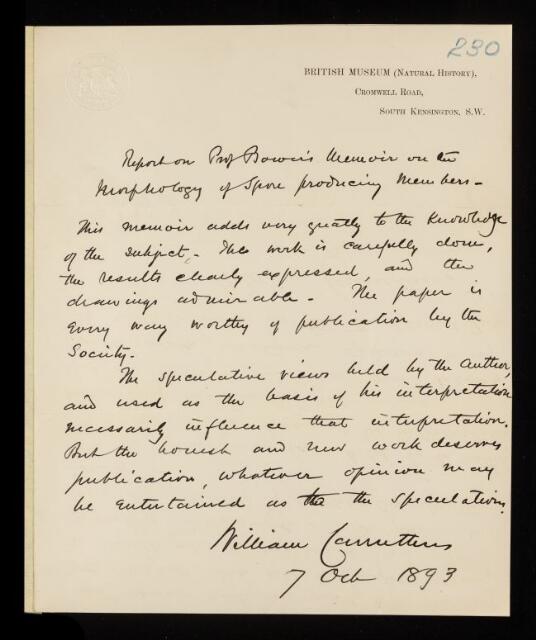 230
BRITISH MUSEUM (NATURAL HISTORY),
CROMWELL ROAD,
SOUTH KENSINGTON, S.W.
Report on Prof Bower's Memoir on the
Morphology of Spore producing Members-
This memoir adds very greatly to the knowledge
of the subject,- The work is carefully done,
the results clearly expressed, and the
drawings admirable- The paper is
every way worthy of publication by the
Society.
The speculative views held by the author,
and used as the basis of his interpretation
necessarily influence that interpretation.
But the honest and new work deserves
publication, whatever opinion may
be entertained as the the speculations.
William Carruthers
7 Oct 1893